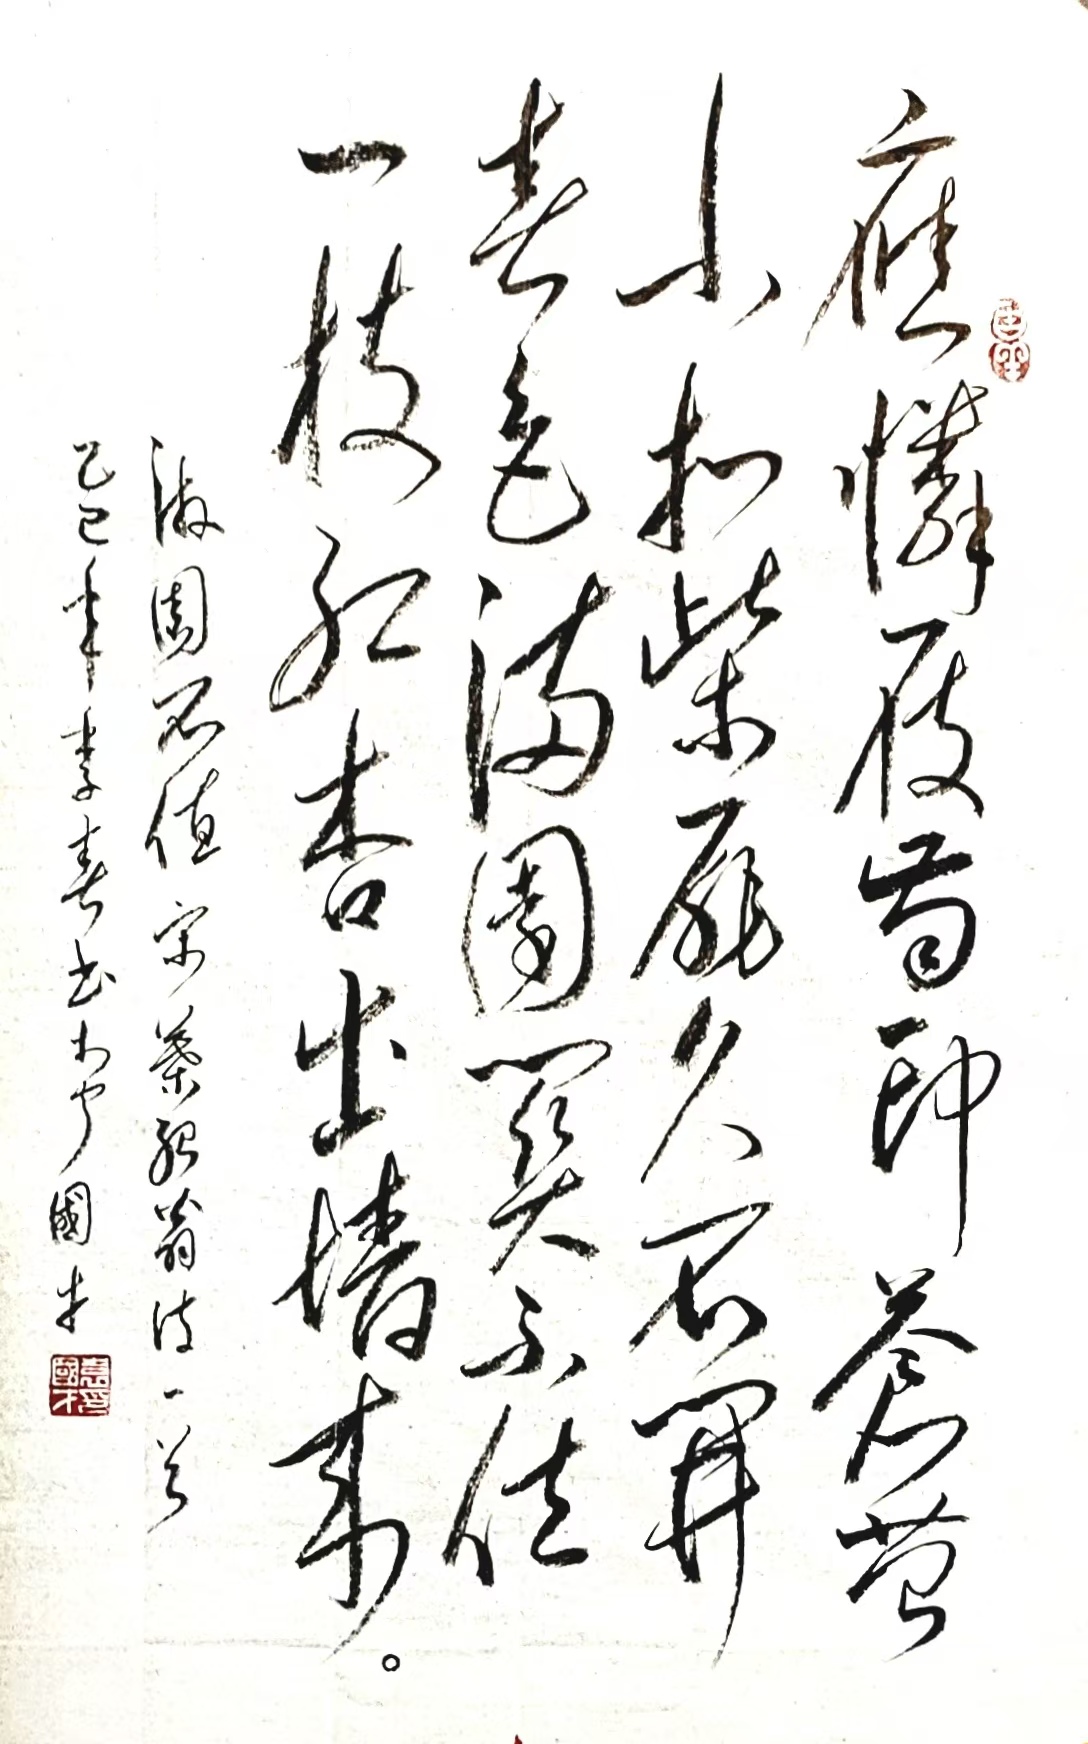 應憐屐齒印蒼苔
小扣柴扉久不開
春色滿園關不住
一枝紅杏出墻來。
游園不值 宋 葉紹翁詩一首
乙巳年季春書 國才